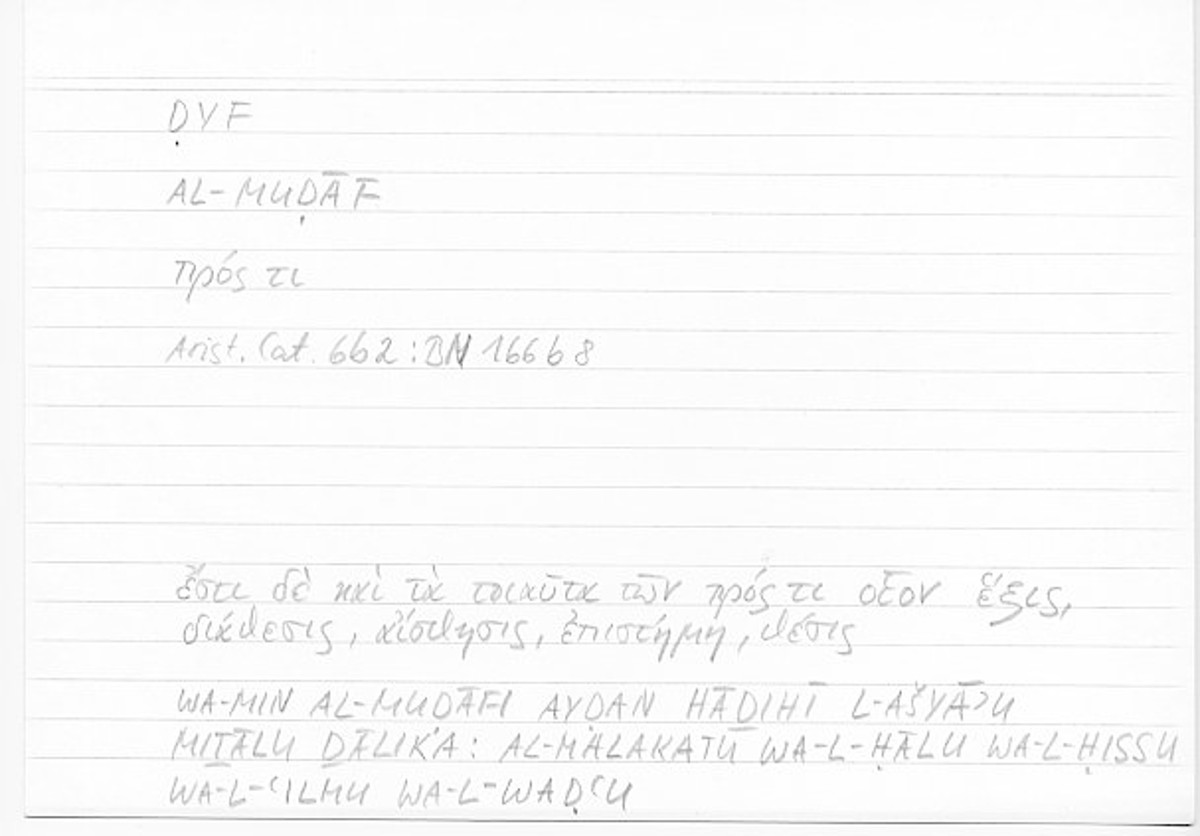 ḌYF
AL-MUḌĀF
πρός τι
Arist. Cat. 6b2 : BN 166b8
ἔστι δὲ καὶ τὰ τοιαῦτα τῶν πρός τι οἷον ἕξις,
διάθεσις, αἴσθησις, ἐπιστήμη, θέσις
WA-MIN AL-MUDĀFI AYḌAN HĀḎIHĪ L-AŠYĀʾU
MIṮĀLU ḎĀLIKA: AL-MALAKATU WA-L-ḤĀLU WA-L-ḤISSU
WA-L-ʿILMU WA-L-WAḌʿU